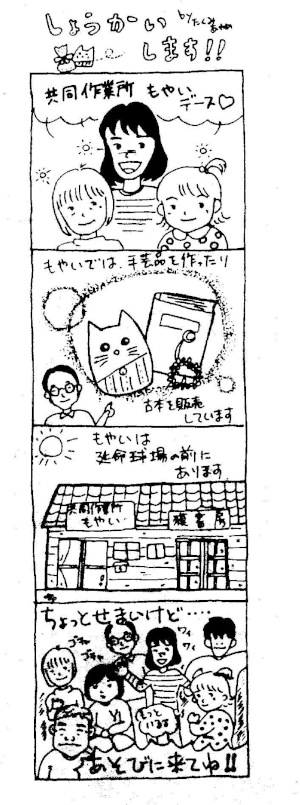 しょうかい
します!!
共同作業所 もやい
デース♡
もやいでは、手芸品を作ったり
古本を販売
しています
もやいは
延命球場の前に
あります
共同作業所
もやい
ちょっとせまいけど‥‥
ワイ
ワイ
ゴチャ
ゴチャ
もっと
いるよ
あそびに来てね!!